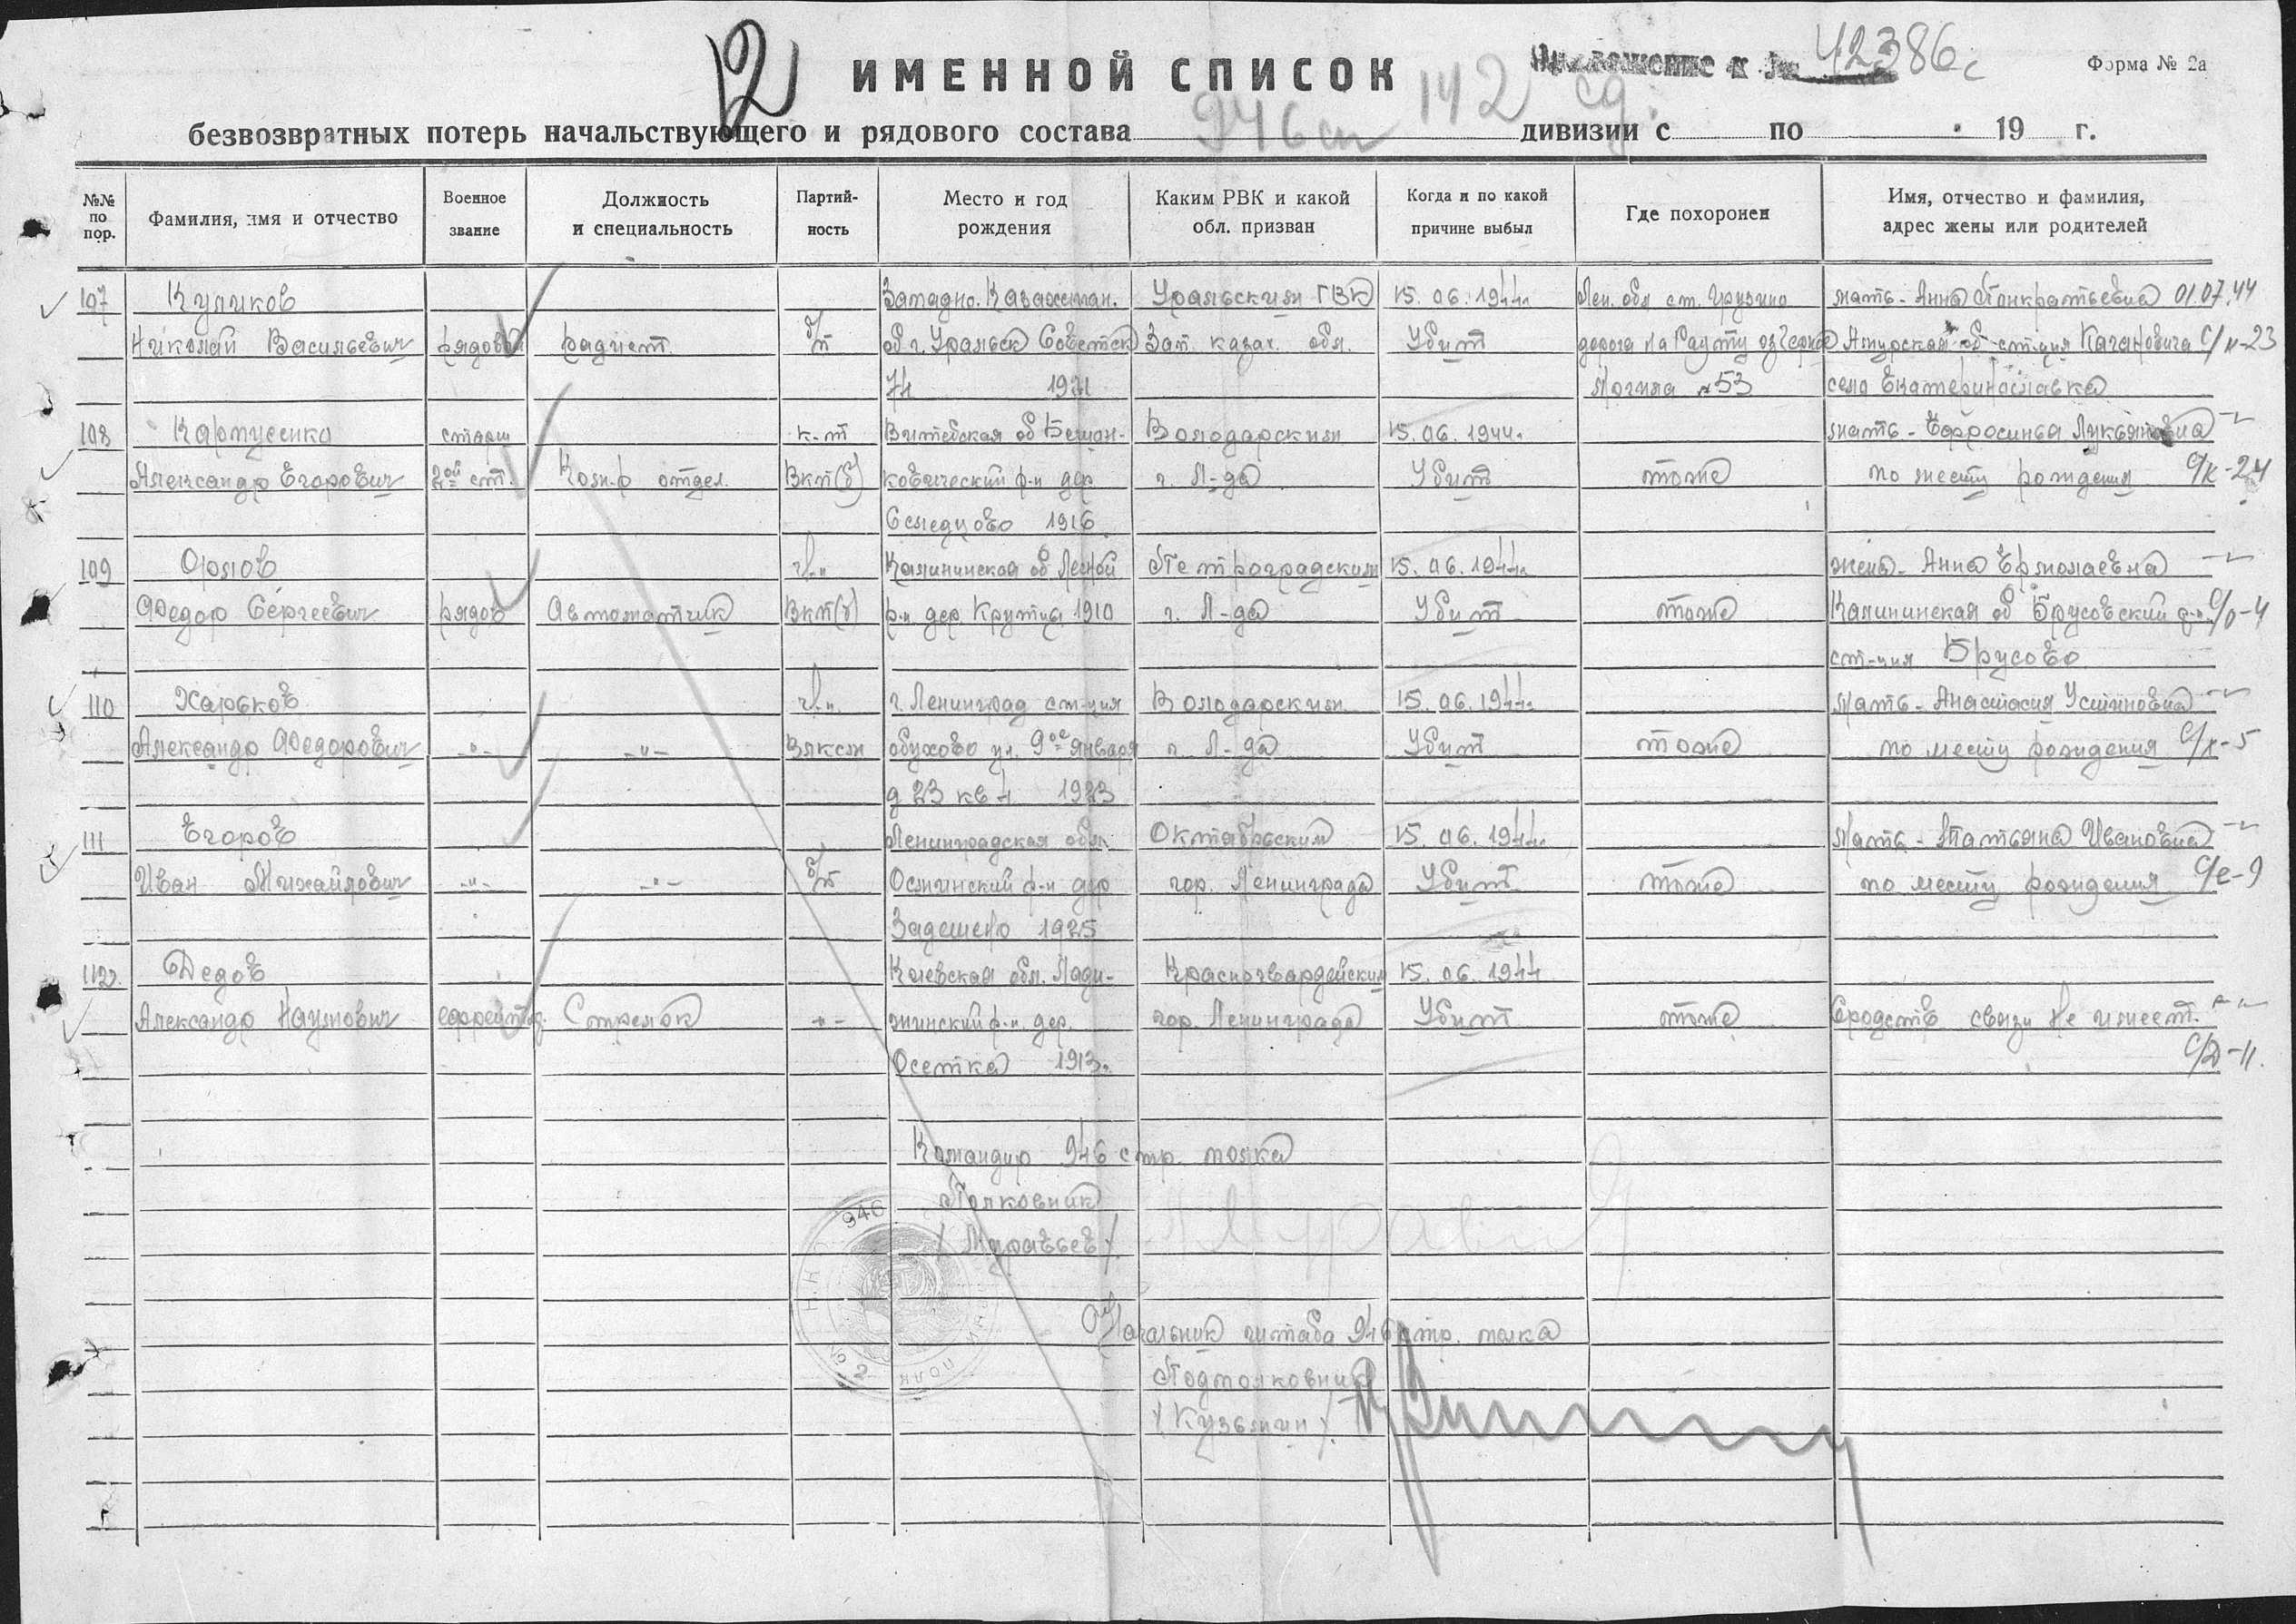 Приложение к № 42386с
Форма № 2а
ИМЕННОЙ СПИСОК
946 сп 142 сд.
безвозвратных потерь начальствующего и рядового состава дивизии с по 19 г.
№№ по пор. Фамилия, имя и отчество Военное звание Должность и специальность Партий- ность Место и год рождения Каким РВК и какой обл. призван Когда и по какой причине выбыл Где похоронен Имя, отчество и фамилия, адрес жены или родителей
107 Куликов Западно. Казахстан. Уральским ГВК 15.06.1944г. Лен. обл ст. Грузино мать - Анна Панкратьевна 01.07.44
Николай Васильевич рядовой радист б/п об г. Уральск Советск Зап. казах. обл. Убит дорога на Рауту оз Черное Амурская об ст-ция Кагановича С/к-23
74 1921 Могила №53 село Екатеринославка
108 Карпусенко старш к-т Витебская об Бешан- Володарским 15.06.1944г. мать - Ефросинья Лукьяновна -"-
Александр Егорович 2ой ст. Ком-р отдел. Вкп(б) ковический р-н дер г. Л-да Убит тоже по месту рождения С/к-24
Селедцово 1916
109 Орлов чл-н Калининская об Лесной Петроградским 15.06.1944г. жена - Анна Ермолаевна -"-
Федор Сергеевич рядов Автоматчик Вкп(б) р-н дер. Крутцы 1910 г. Л-да Убит тоже Калининская об Брусовский р-н С/о-4
ст-ция Брусово
110 Харьков чл-н г. Ленинград ст-ция Володарским 15.06.1944г. Мать - Анастасия Устиновна -"-
Александр Федорович -"- -"- Влксм обухово ул. 9ое января г. Л-да Убит тоже по месту рождения С/х-5
д 23 кв 4 1923
111 Егоров Ленинградская обл. Октябрьским 15.06.1944г. Мать - Татьяна Ивановна -"-
Иван Михайлович -"- -"- б/п Осьминский р-н дер гор. Ленинграда Убит тоже по месту рождения С/е-9
1925
112. Дедов Киевская обл. Лади- Красногвардейским 15.06.1944
Александр Наумович ефрейтор. Стрелок -"- жинский р-н. дер. гор. Ленинграда Убит тоже Сродств связи не имеет. -"-
Осетка 1913г. С/д-11.
Командир 946 стр. полка
Полковник
/Муравьев/
946
Начальник штаба 946 стр. полка
Подполковник
/Кузьмин/
№ 2 полк